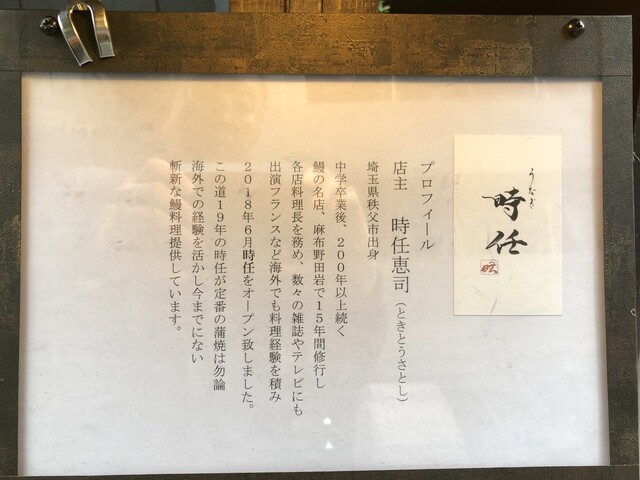 うなぎ
時任
プロフィール
店主 時任恵司(ときとうさとし)
埼玉県秩父市出身
中学卒業後、200年以上続く
鰻の名店、麻布野田岩で15年間修行し
各店料理長を務め、数々の雑誌やテレビにも
出演フランスなど海外でも料理経験を積み
2018年6月時任をオープン致しました。
この道19年の時任が定番の蒲焼は勿論
海外での経験を活かし今までにない
斬新な鰻料理提供しています。